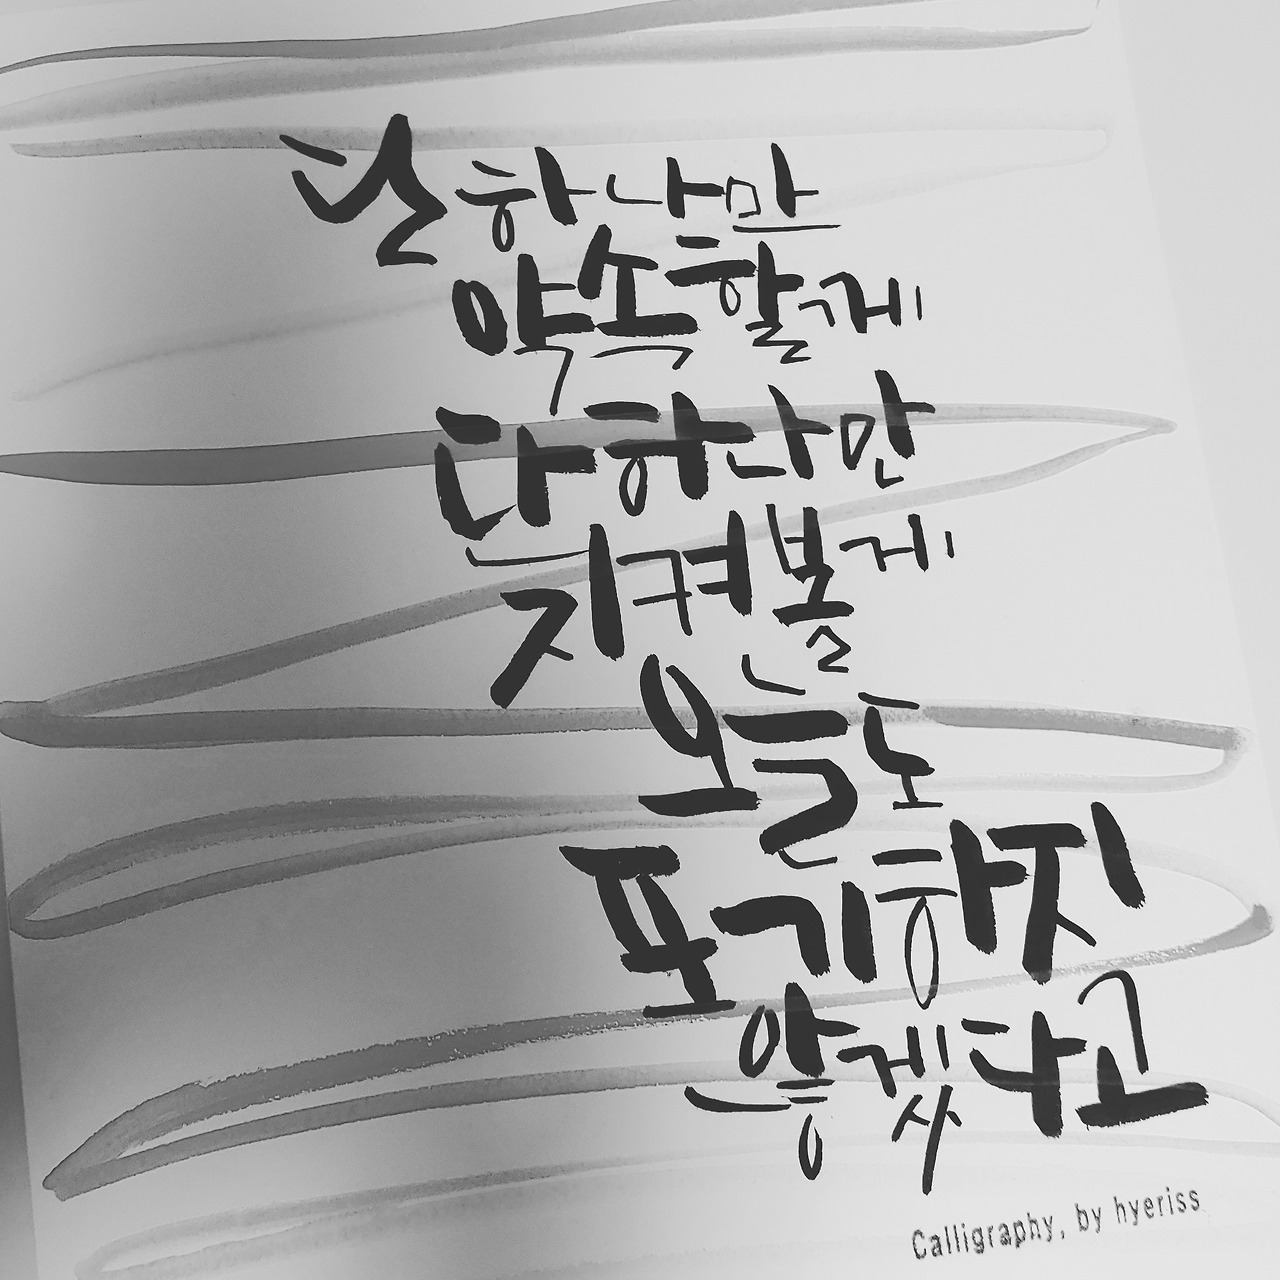 단 하나만
약속할게
딱 하나만
지켜볼게
오늘도
포기하지
않겠다고
Calligraphy, by hyeriss